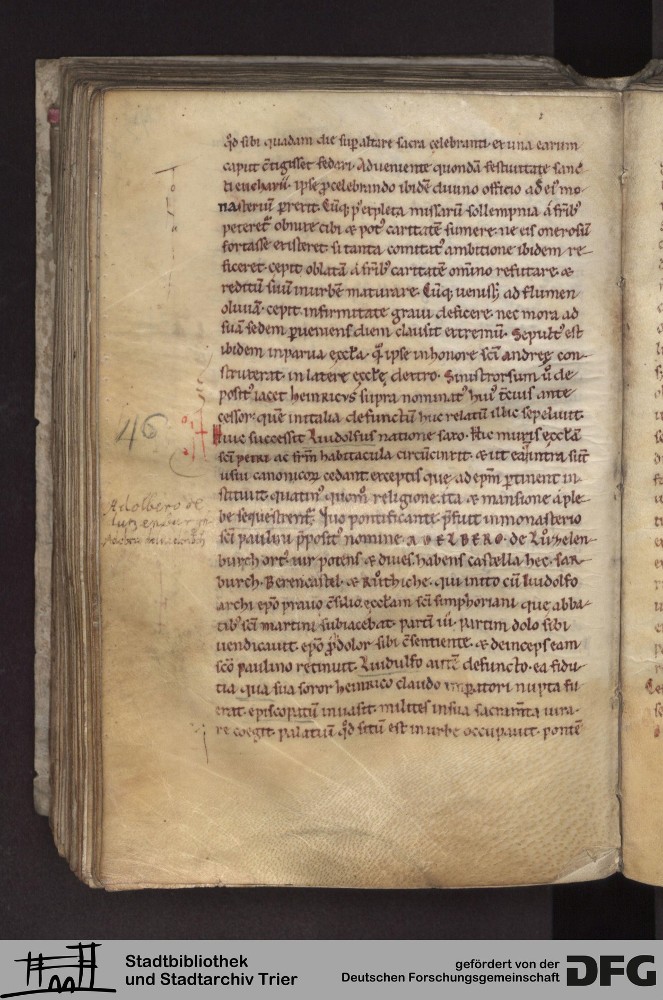 qd̄ sibi quadam die sup altare sacra celebranti et una earum
caput c̄tigisset fedari. Adveniente quondā festivitate sanc
ti eucharii. ipse ꝓcelebrando ibidē divino officio ad ei᷒ mo
nasteriū ꝑrexit. Cūq; ꝑexpleta missarū sollempnia a fr̄ib᷒
peteret᷑ obnixe cibi & pot᷒ caritatē sumere. ne eis onerosū
fortasse existeret si tanta comitat᷒ ambitione ibidem re
ficeret. cepit oblatā a fr̄ib᷒ caritatē om̄ino refutare. &
reditū suū in urbē maturare. Cūq; venisset ad flumen
oliviā. cepit infirmitate gravi deficere. nec mora ad
suā sedem ꝑveniens diem clausit extremū. Sepult᷒ est
ibidem in parva eccl̄a. quā ipse in honore sc̄i andreę con
struxerat. in latere eccl̄ę dextro. Sinistrorsum ū de
posit᷒ iacet heinricvs supra nominat᷒ hui᷒ t̄cius ante
cessor. quē in italia defunctū huc relatū illic sepelivit.
Huic successit Liudolfus natione saxo. Hic muris eccl̄ā
sc̄i petri ac fr̄m habitacula circūcinxit. & ut ea intra sūt
usui canonicoꝝ cedant. exceptis que ad ep̄m ꝑtinent in
stituit. quatin᷒ quom̄ religione. ita & mansione a ple
be sequestrent᷑. Quo pontificante p̄fuit in monasterio
sc̄i paulini p̄posit᷒ nomine ADELBERO. de Lůzelen
burch ort᷒. vir potens & dives. habens castella hec. sar
burch. Berencastel. & Růthiche. qui inito cū liudolfo
archiep̄o pravo c̄silio. eccl̄am sc̄i simphoriani que abba
tib᷒ sc̄i martini subiacebat. partī vi. partim dolo sibi
vendicavit. ep̄o ꝓdolor sibi c̄sentiente. & deinceps eam
sc̄o paulino retinuit. Liudulfo autē defuncto. ea fidu
tia qua sua soror heinrico claudo imꝑatori nupta fu
erat. episcopatū invasit. milites in sua sacram̄ta iura
re coegit. palatiū qd̄ sitū est in urbe occupavit. pontē
46
Adalbero de
Stadtbibliothek
und Stadtarchiv Trier
gefördert von der
Deutschen Forschungsgemeinschaft
DFG